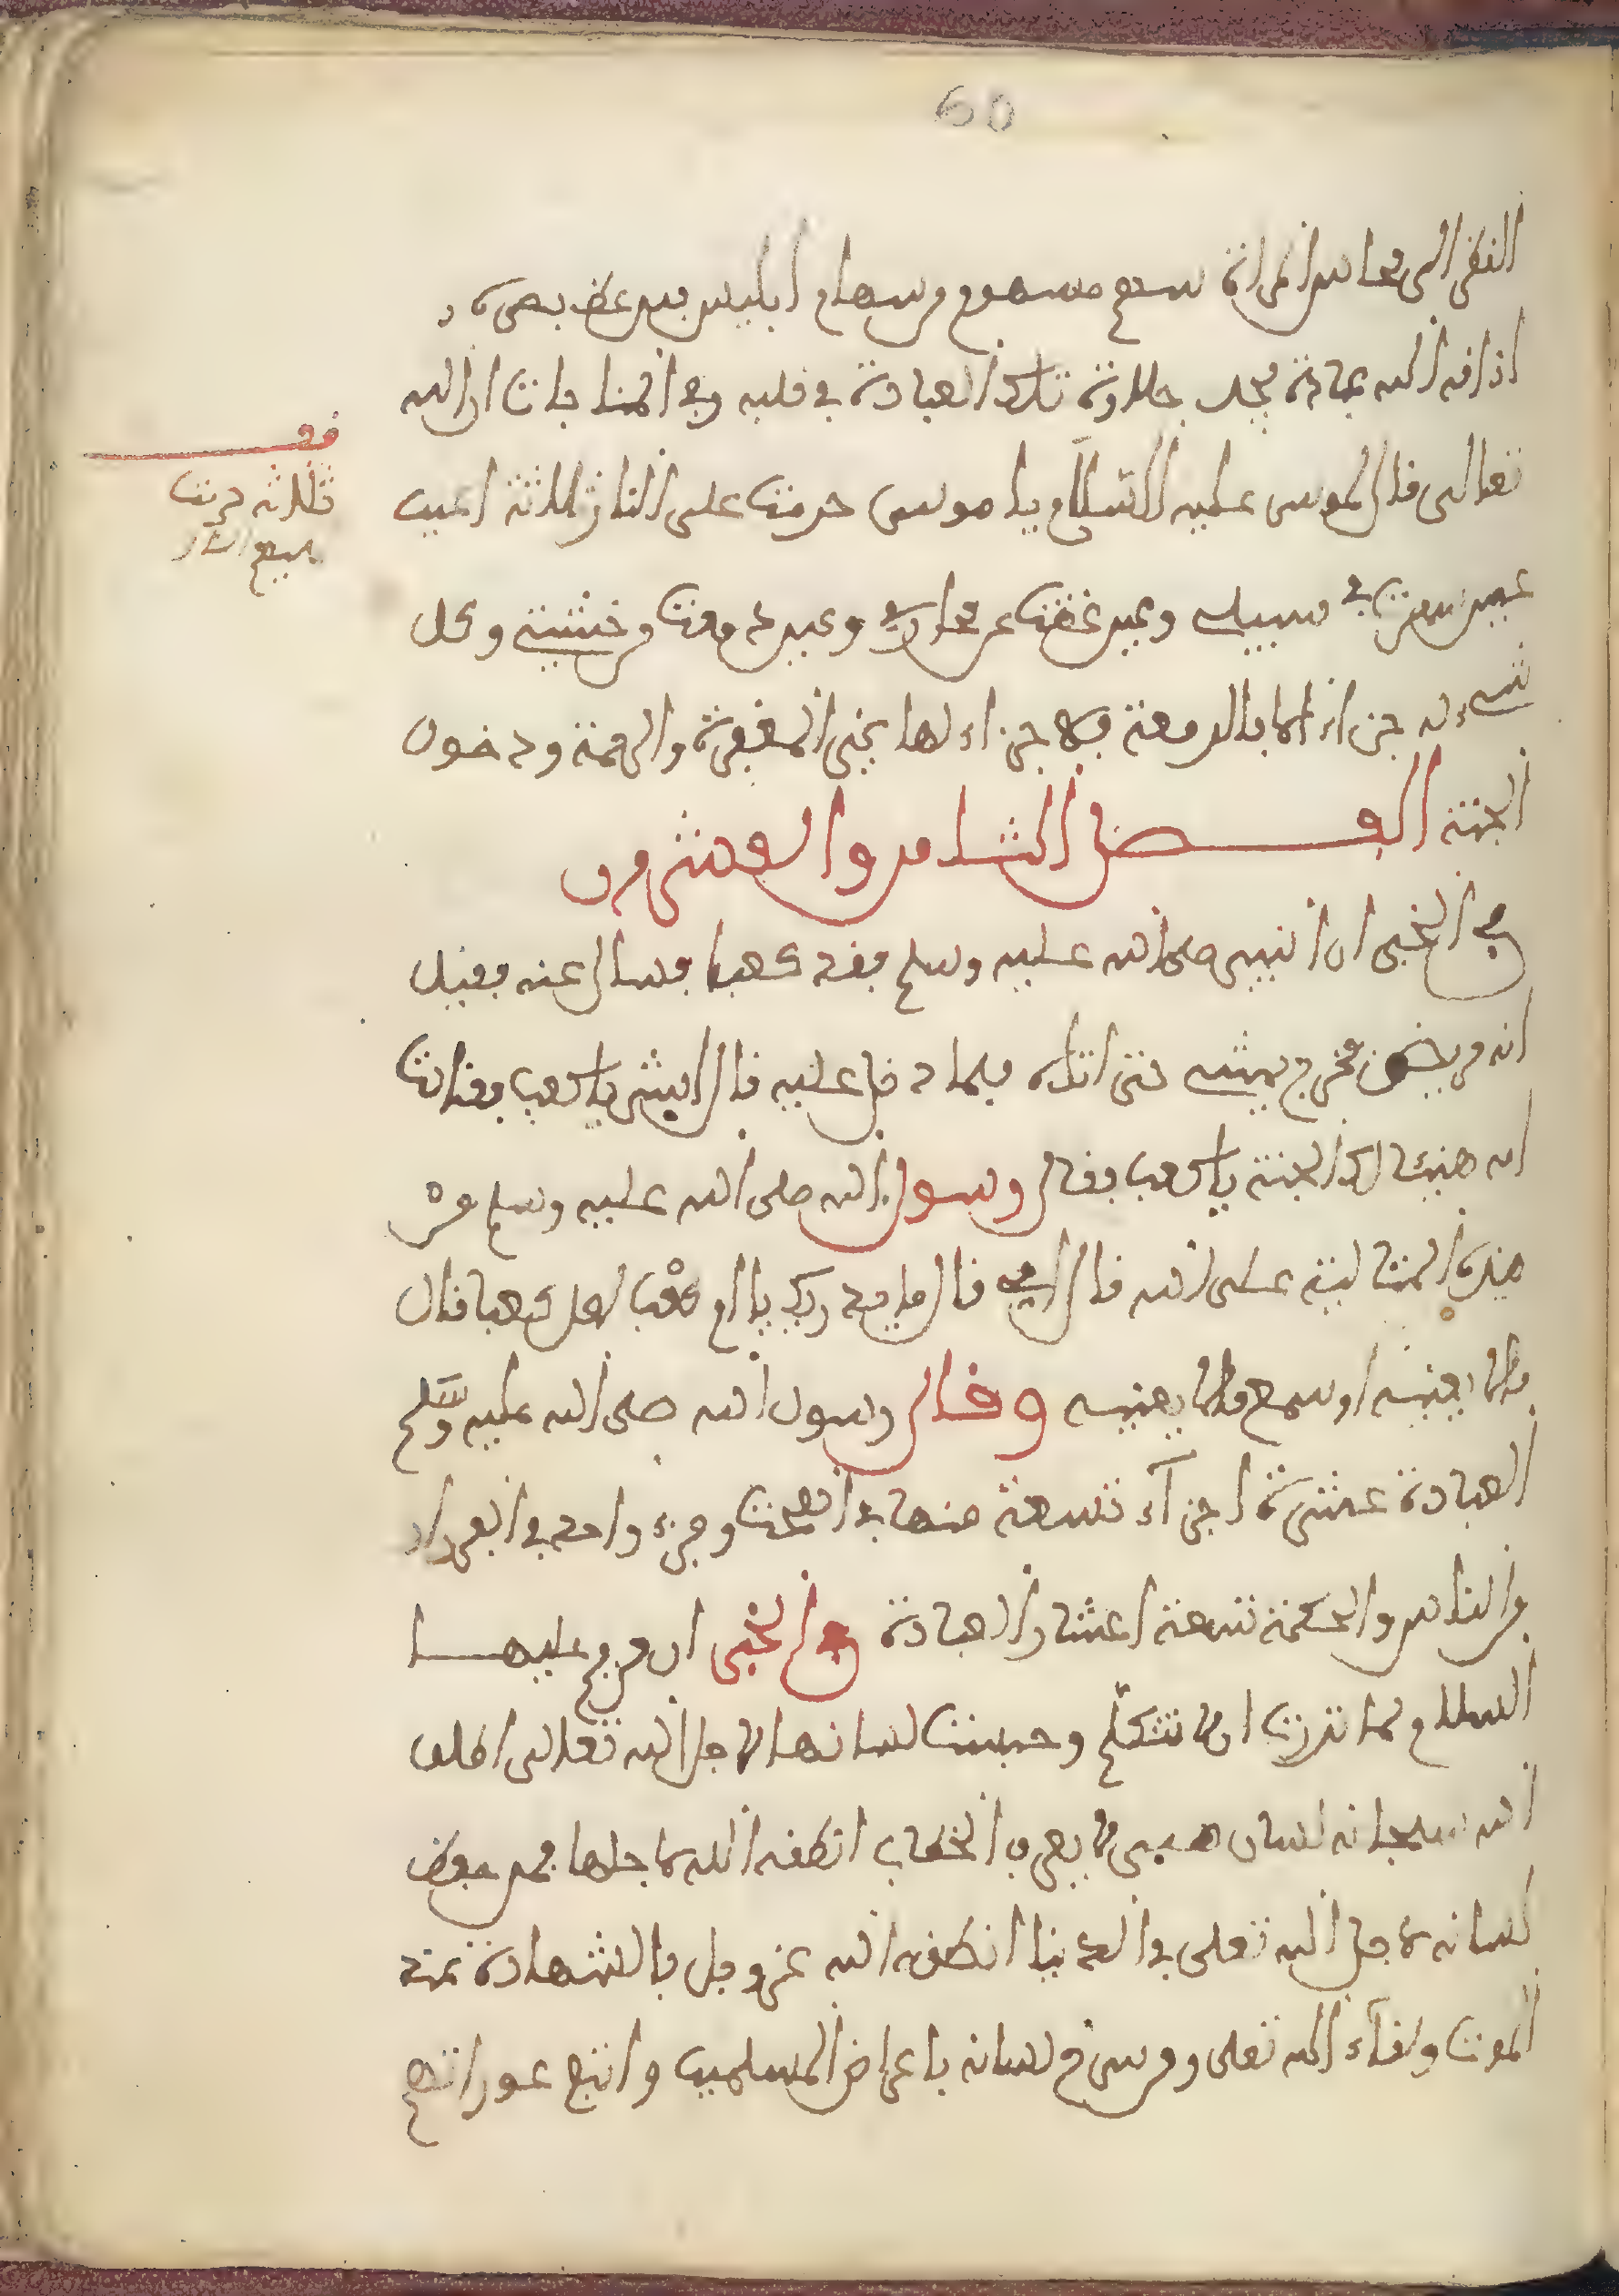 60
النظر الى محاسن المراة سهم مسموم من سهام ابليس فمن غض بصره
اذاقه الله عبادة يجد حلاوة تلك العبادة في قلبه وفي المناجات ان الله
تعالى قال لموسى عليه السلام يا موسى حرمت على النار ثلاثة اعين
عين سهرت في سبيلي وعين غضت عن محارمي وعين دمعت من خشيتي وكل
شيء له جزاء الا الدمعة فلا جزاء لها غير المغفرة والرحمة ودخول
الجنة الفصل الثامن والعشرون
في الخبر ان النبي صلى الله عليه وسلم فقد كعبا فسال عنه فقيل
انه مريض فخرج يمشي حتى اتاه فلما دخل عليه قال ابشر يا كعب فقالت
امه هنيئا لك الجنة يا كعب فقال رسول الله صلى الله عليه وسلم من
هذه المتالية على الله قال امي قال ما يدريك يا ام كعب لعل كعبا قال
ما لا يعنيه او سمع ما لا يعنيه وقال رسول الله صلى الله عليه وسلم
العبادة عشرة اجزآء تسعة منها في الصمت وجزء واحد في الفرار
من الناس والحكمة تسعة اعشار العبادة وفي الخبر ان مريم عليها
السلام لما نذرت ان لا تتكلم وحبست لسانها لاجل الله تعالى اطلق
الله سبحانه لسان صبي لا يعرف الخطاب انطقه الله لاجلها فمن حفظ
لسانه لاجل الله تعلى في الدنيا انطقه الله عز وجل بالشهادة عند
الموت ولقآء الله تعلى ومن سرح لسانه باعراض المسلمين واتبع عوراتهم
قف
ثلاثة حرمت
عليهم النار